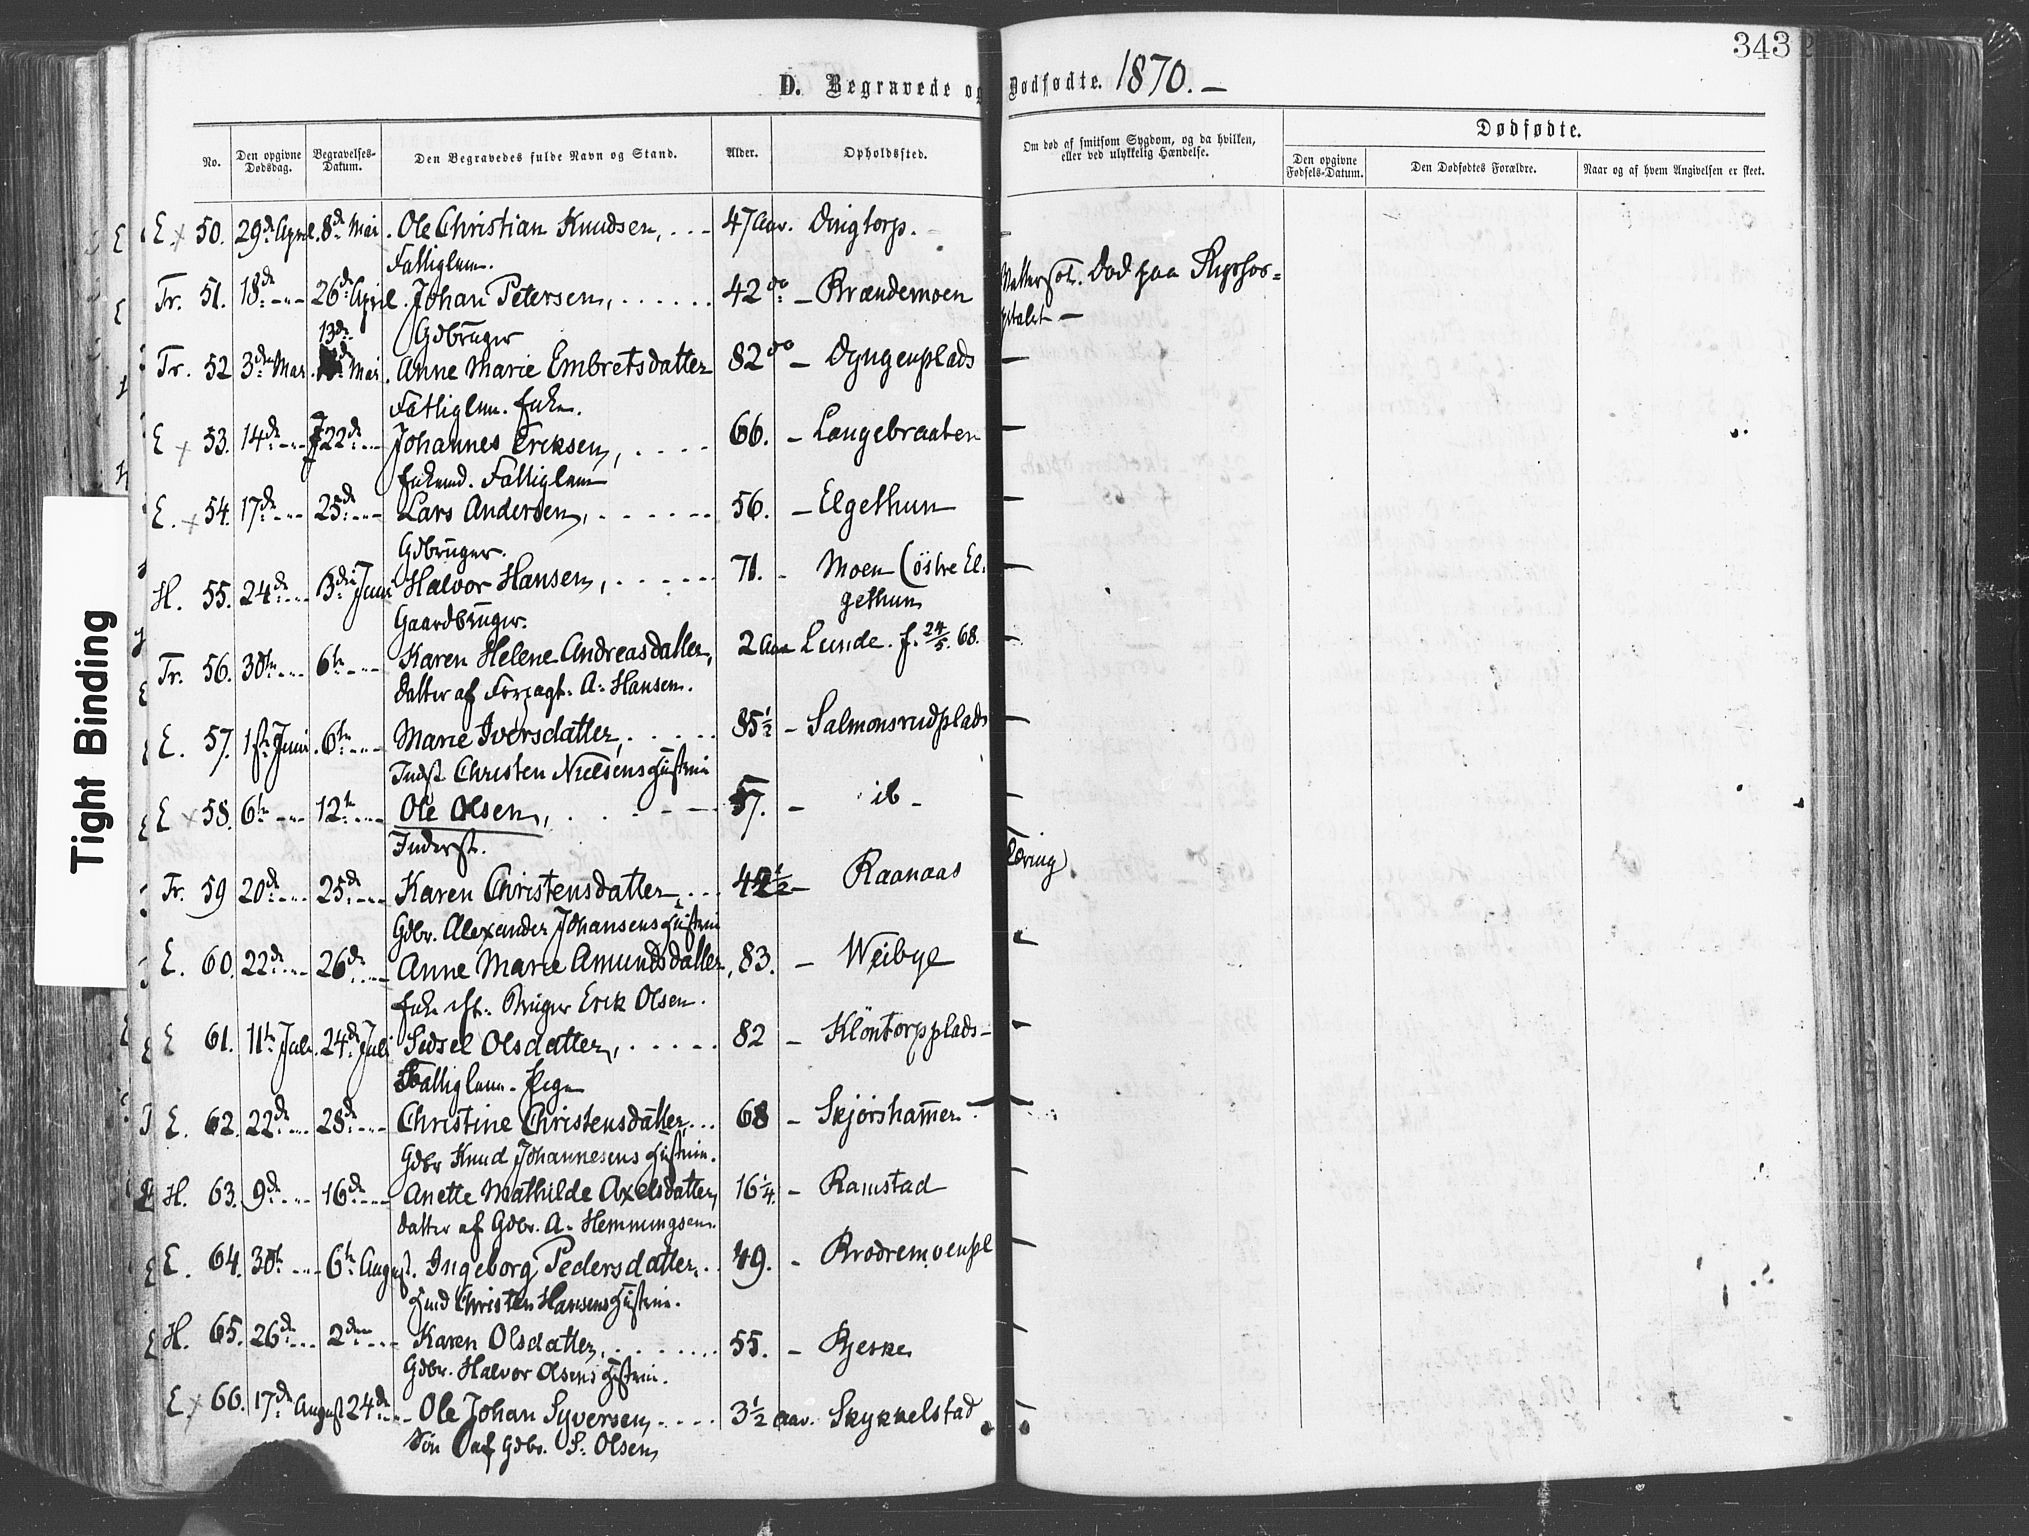 343
D. Begravede og Dødfødte. 1870. –
No.
Den opgivne Dødsdag.
Begravelses-Datum.
Den Begravedes fulde Navn og Stand.
Alder.
Opholdssted.
Om død af smitsom Sygdom, og da hvilken, eller ved ulykkelig Hændelse.
Dødfødte.
Den opgivne Fødsels-Datum.
Den Dødfødtes Forældre.
Naar og af hvem Angivelsen er skeet.
Tight Binding
E. x 50. 29de April. 8de Mai. Ole Christian Knudsen, 47 Aar.
Fattiglem.
Tr. 51. 18de 26de April. Johan Petersen, 42 do – Brændemoen Død paa
Gdbruger
13de
Tr. 52 3die Mai. Mai. Anne Marie Embretsdatter 82 do – Dyngenplads –
Fattiglem. Enke.
E x 53. 14de 22de Johannes Eriksen, 66. – Langebraaten –
Enkemd. Fattiglem
E. x 54. 17de 25de Lars Andersen, 56. – Elgethun –
Gdbruger.
H. 55. 24de 3die Juni Halvor Hansen, 71. – Moen (östre El- –
gethun
Gaardbruger.
Tr. 56. 30te 6te Karen Helene Andreasdatter, 2 Aar Lunde. f. 24/5. 68. –
Datter af Forpagt. A. Hansen.
E. 57. 1ste Juni. 6te Marie Iversdatter, 85½ – Salmonsrudplads –
Inds. Christen Nielsens Hustru
E x 58. 6te 12te Ole Olsen, 57. – ib – –
Inderst.
Tr. 59 20de 25de Karen Christensdatter, 42½ – Raanaas
Gdbr. Alexander Johansens Hustru
E. 60. 22de 26de Anne Marie Amundsdatter, 83. – Weibye
Enke eft. Bruger Erik Olsen.
E 61. 11te Juli. 24de Juli Sidsel Olsdatter, 82 – Klöntorpplads –
Fattiglem. Pige
E. 62. 22de 28de Christine Christensdatter, 68 – Skjörshammer –
Gdbr Knud Johannesens Hustru.
H. 63. 9de 16de Anette Mathilde Axelsdatter, 16¼. – Ramstad –
Datter af Gdbr. A. Hemmingsen.
E. 64. 30te 6te August. Ingeborg Pedersdatter, 49. –
Christen Hansens Hustru.
H. 65. 26de 2den Karen Olsdatter, 55. – Bjerke
Gdbr. Halvor Olsens Hustru.
E x 66. 17de August 24de Ole Johan Syversen, 3½ Aar. Skykkelstad
Sön af Gdbr. S. Olsen